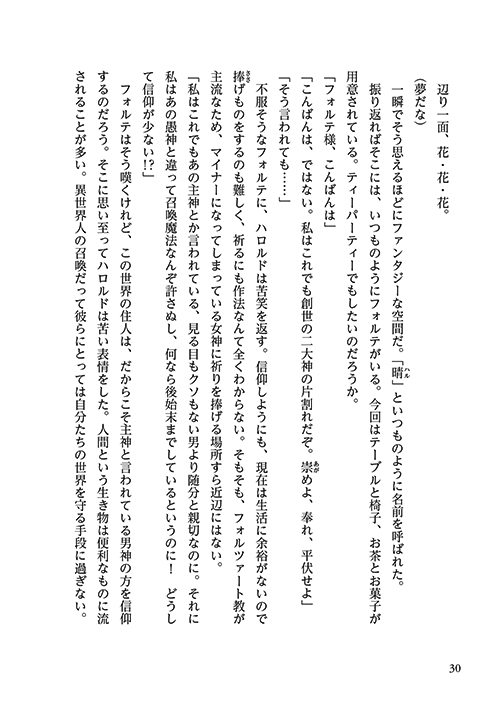 辺り一面、花・花・花。
(夢だな)
一瞬でそう思えるほどにファンタジーな空間だ。「晴」といつものように名前を呼ばれた。
ハル
振り返ればそこには、いつものようにフォルテがいる。今回はテーブルと椅子、お茶とお菓子が
用意されている。ティーパーティーでもしたいのだろうか。
「フォルテ様、こんばんは」
「こんばんは、ではない。私はこれでも創世の二大神の片割れだぞ。崇めよ、奉れ、平伏せよ」
あが
「そう言われても……」
不服そうなフォルテに、ハロルドは苦笑を返す。信仰しようにも、現在は生活に余裕がないので
捧げものをするのも難しく、祈るにも作法なんて全くわからない。そもそも、フォルツァート教が
ささ
主流なため、マイナーになってしまっている女神に祈りを捧げる場所すら近辺にはない。
「私はこれでもあの主神とか言われている、見る目もクソもない男より随分と親切なのに。それに
私はあの愚神と違って召喚魔法なんぞ許さぬし、何なら後始末までしているというのに！　どうし
て信仰が少ない!?」
フォルテはそう嘆くけれど、この世界の住人は、だからこそ主神と言われている男神の方を信仰
するのだろう。そこに思い至ってハロルドは苦い表情をした。人間という生き物は便利なものに流
されることが多い。異世界人の召喚だって彼らにとっては自分たちの世界を守る手段に過ぎない。
30